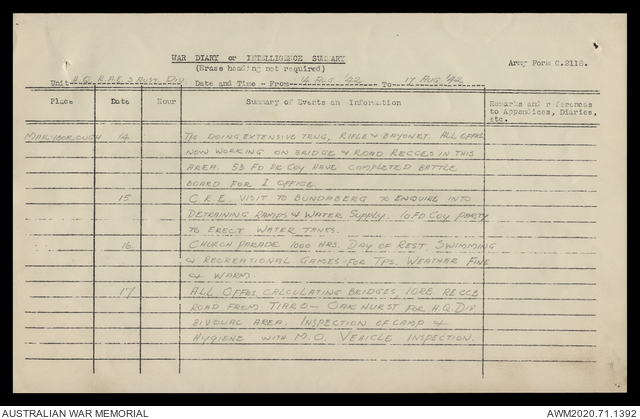 WAR DIARY or INTELLIGENCE SUMMARY
(Erase heading not required)
Army Form C.2118.
Unit H.Q. R.A.E. 3 AUST. DIV. Date and Time - From 14 AUG. '42 To 17 AUG. '42
Place Date Hour Summary of Events and Information Remarks and references to Appendices, Diaries, etc.
MARYBOROUGH 14 TPS DOING EXTENSIVE TRNG, RIFLE & BAYONET. ALL OFFRS
NOW WORKING ON BRIDGE & ROAD RECCES IN THIS
AREA. 5B FD PK COY HAVE COMPLETED BATTLE
BOARD FOR I OFFICE.
15 C.R.E. VISIT TO BUNDABERG TO ENQUIRE INTO
DETRAINING RAMPS & WATER SUPPLY. 10 FD COY PARTY
TO ERECT WATER TANKS.
16 CHURCH PARADE 1000 HRS. DAY OF REST SWIMMING
& RECREATIONAL GAMES FOR TPS. WEATHER FINE
& WARM.
17 ALL OFFRS CALCULATING BRIDGES, RECCE
ROAD FROM TIARO - OAKHURST FOR H.Q. DIV
BIVOUAC AREA. INSPECTION OF CAMP &
HYGIENE WITH M.O. VEHICLE INSPECTION.
AUSTRALIAN WAR MEMORIAL
AWM2020.71.1392